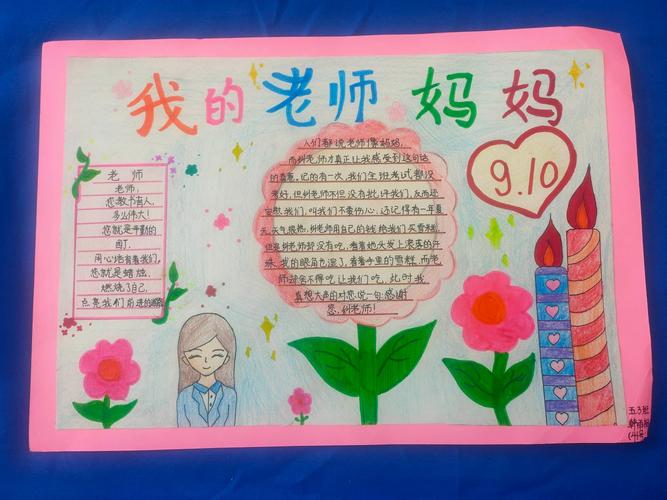 我的老师妈妈
9.10
老师
老师,
您教书育人,
多么伟大!
您就是辛勤的
园丁,
用心培育着我们,
您就是蜡烛,
燃烧了自己,
点亮我们前进的道路
人们都说,老师像妈妈,
而刘老师才真正让我感受到这句话
的真意。记的有一次,我们全班考试都没
考好,但刘老师不但没有批评我们,反而还
安慰我们,叫我们不要伤心,还记得有一年夏
天,天气很热,刘老师用自己的钱给我们买雪糕,
但是刘老师却没有吃,看着她头发上滚落的汗
珠,我的眼角湿了,看着手里的雪糕,而老
师却舍不得吃,让我们吃,此时我
真想大声的对您说一句:感谢
您,刘老师!
五.3班